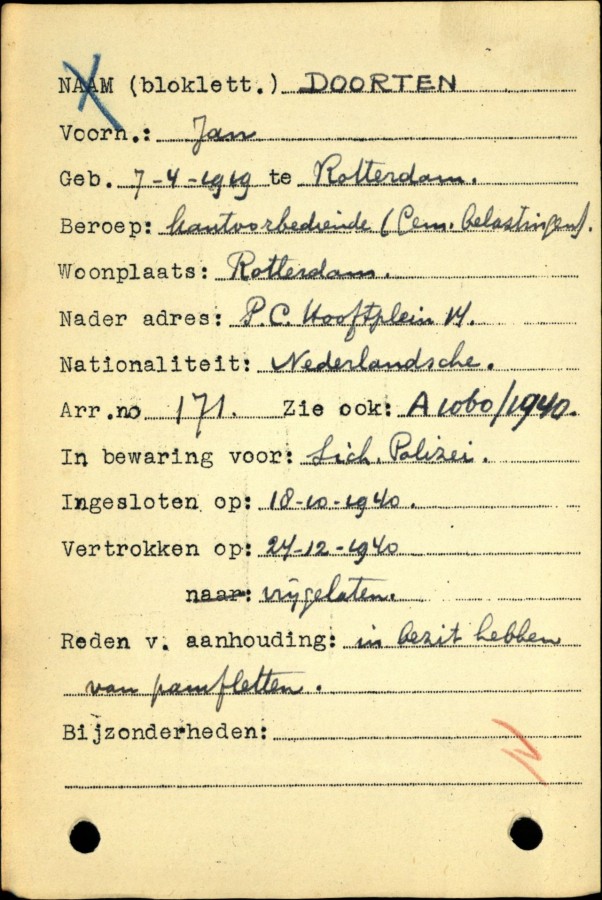 NAAM (bloklett.) DOORTEN
Voorn.: Jan
Geb. 7-4-1919 te Rotterdam.
Beroep: kantoorbediende (Gem. belastingen).
Woonplaats: Rotterdam.
Nader adres: P.C. Hooftplein 14.
Nationaliteit: Nederlandsche.
Arr.no 171. Zie ook: A 1060/1940.
In bewaring voor: Sich. Polizei.
Ingesloten op: 18-10-1940.
Vertrokken op: 24-12-1940
naar: vrijgelaten.
Reden v. aanhouding: in bezit hebben
van pamfletten.
Bijzonderheden: